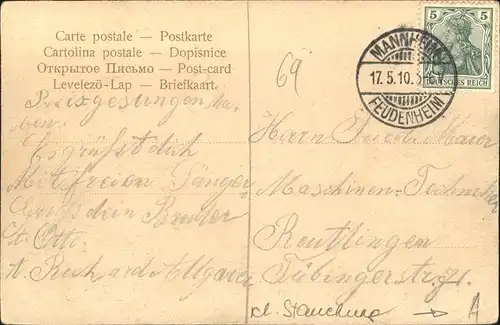 Carte postale — Postkarte
Cartolina postale — Dopisnice
Открытое Письмо — Post-card
Levelező-Lap — Briefkaart.
69
5 5
DEUTSCHES REICH
MANNHEIM
17.5.10.
FEUDENHEIM
Preisgesungen ha-
ben.
Es grüßt dich
Mit freien Sänger
Gruß dein Bruder
Otto.
Herrn Maier
Maschinen-Techniker
Reutlingen
Tübingerstr. 71.
A